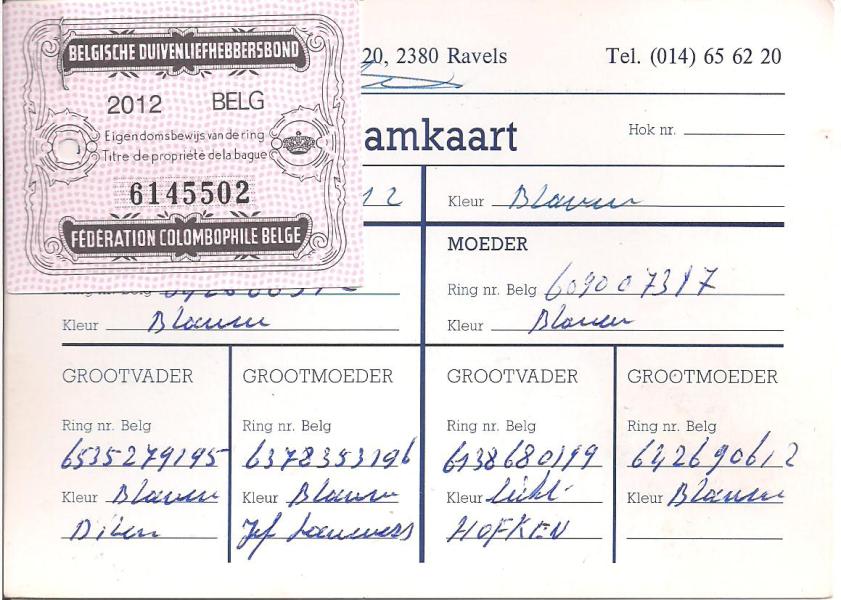 BELGISCHE DUIVENLIEFHEBBERSBOND
2012 BELG
Eigendomsbewijs van de ring
Titre de propriété de la bague
6145502
FÉDÉRATION COLOMBOPHILE BELGE
20, 2380 Ravels Tel. (014) 65 62 20
amkaart Hok nr.
12 Kleur Blauw
MOEDER
Ring nr. Belg
Kleur Blauw Kleur Blauw
GROOTVADER GROOTMOEDER GROOTVADER GROOTMOEDER
Ring nr. Belg Ring nr. Belg Ring nr. Belg Ring nr. Belg
6535279195 6378353196 6138680199
Kleur Blauw Kleur Blauw Kleur Kleur Blauw
Jef HOFKEN